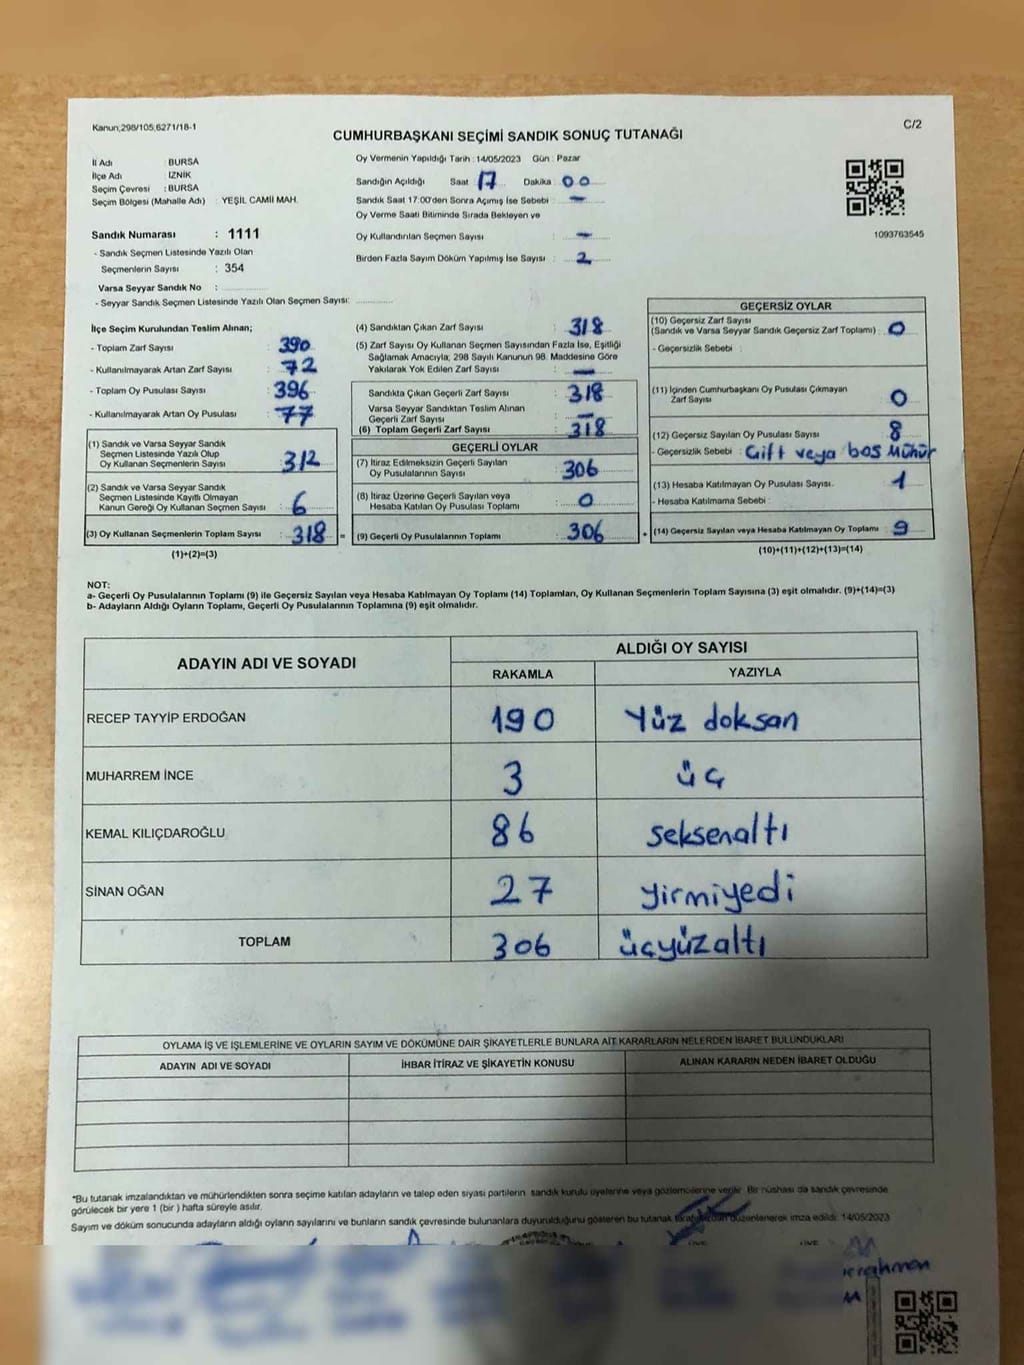 Kanun;298/105,6271/18-1
C/2
CUMHURBAŞKANI SEÇİMİ SANDIK SONUÇ TUTANAĞI
İl Adı : BURSA
İlçe Adı : IZNİK
Seçim Çevresi : BURSA
Seçim Bölgesi (Mahalle Adı) : YEŞİL CAMİİ MAH.
Sandık Numarası : 1111
- Sandık Seçmen Listesinde Yazılı Olan
Seçmenlerin Sayısı : 354
Varsa Seyyar Sandık No :
- Seyyar Sandık Seçmen Listesinde Yazılı Olan Seçmen Sayısı:
Oy Vermenin Yapıldığı Tarih : 14/05/2023 Gün : Pazar
Sandığın Açıldığı Saat 17 Dakika 00
Sandık Saat 17:00'den Sonra Açımış İse Sebebi : -
Oy Verme Saati Bitiminde Sırada Bekleyen ve
Oy Kullandırılan Seçmen Sayısı : -
Birden Fazla Sayım Döküm Yapılmış İse Sayısı : 2
1093763545
İlçe Seçim Kurulundan Teslim Alınan;
- Toplam Zarf Sayısı : 390
- Kullanılmayarak Artan Zarf Sayısı : 72
- Toplam Oy Pusulası Sayısı : 396
- Kullanılmayarak Artan Oy Pusulası : 77
(1) Sandık ve Varsa Seyyar Sandık
Seçmen Listesinde Yazılı Olup
Oy Kullanan Seçmenlerin Sayısı : 312
(2) Sandık ve Varsa Seyyar Sandık
Seçmen Listesinde Kayıtlı Olmayan
Kanun Gereği Oy Kullanan Seçmen Sayısı : 6
(3) Oy Kullanan Seçmenlerin Toplam Sayısı : 318 =
(1)+(2)=(3)
(4) Sandıktan Çıkan Zarf Sayısı : 318
(5) Zarf Sayısı Oy Kullanan Seçmen Sayısından Fazla İse, Eşitliği
Sağlamak Amacıyla, 298 Sayılı Kanunun 98. Maddesine Göre
Yakılarak Yok Edilen Zarf Sayısı : -
Sandıkta Çıkan Geçerli Zarf Sayısı : 318
Varsa Seyyar Sandıktan Teslim Alınan
Geçerli Zarf Sayısı : -
(6) Toplam Geçerli Zarf Sayısı : 318
GEÇERLİ OYLAR
(7) İtiraz Edilmeksizin Geçerli Sayılan
Oy Pusulalarının Sayısı : 306
(8) İtiraz Üzerine Geçerli Sayılan veya
Hesaba Katılan Oy Pusulası Toplamı : 0
(9) Geçerli Oy Pusulalarının Toplamı : 306 +
GEÇERSİZ OYLAR
(10) Geçersiz Zarf Sayısı
(Sandık ve Varsa Seyyar Sandık Geçersiz Zarf Toplamı) : 0
- Geçersizlik Sebebi :
(11) İçinden Cumhurbaşkanı Oy Pusulası Çıkmayan
Zarf Sayısı : 0
(12) Geçersiz Sayılan Oy Pusulası Sayısı : 8
- Geçersizlik Sebebi : Gift veya bos Mühür
(13) Hesaba Katılmayan Oy Pusulası Sayısı. : 1
- Hesaba Katılmama Sebebi :
(14) Geçersiz Sayılan veya Hesaba Katılmayan Oy Toplamı : 9
(10)+(11)+(12)+(13)=(14)
NOT:
a- Geçerli Oy Pusulalarının Toplamı (9) ile Geçersiz Sayılan veya Hesaba Katılmayan Oy Toplamı (14) Toplamları, Oy Kullanan Seçmenlerin Toplam Sayısına (3) eşit olmalıdır. (9)+(14)=(3)
b- Adayların Aldığı Oyların Toplamı, Geçerli Oy Pusulalarının Toplamına (9) eşit olmalıdır.
ADAYIN ADI VE SOYADI
ALDIĞI OY SAYISI
RAKAMLA YAZIYLA
RECEP TAYYİP ERDOĞAN 190 Yüz doksan
MUHARREM İNCE 3 üç
KEMAL KILIÇDAROĞLU 86 seksenaltı
SİNAN OĞAN 27 yirmiyedi
TOPLAM 306 üçyüzaltı
OYLAMA İŞ VE İŞLEMLERİNE VE OYLARIN SAYIM VE DÖKÜMÜNE DAİR ŞİKAYETLERLE BUNLARA AİT KARARLARIN NELERDEN İBARET BULUNDUKLARI
ADAYIN ADI VE SOYADI İHBAR İTİRAZ VE ŞİKAYETİN KONUSU ALINAN KARARIN NEDEN İBARET OLDUĞU
*Bu tutanak imzalandıktan ve mühürlendikten sonra seçime katılan adayların ve talep eden siyasi partilerin sandık kurulu üyelerine veya gözlemcilerine verilir. Bir nüshası da sandık çevresinde
görülecek bir yere 1 (bir ) hafta süreyle asılır.
Sayım ve döküm sonucunda adayların aldığı oyların sayılarını ve bunların sandık çevresinde bulunanlara duyurulduğunu gösteren bu tutanak tarafımızdan düzenlenerek imza edildi. 14/05/2023